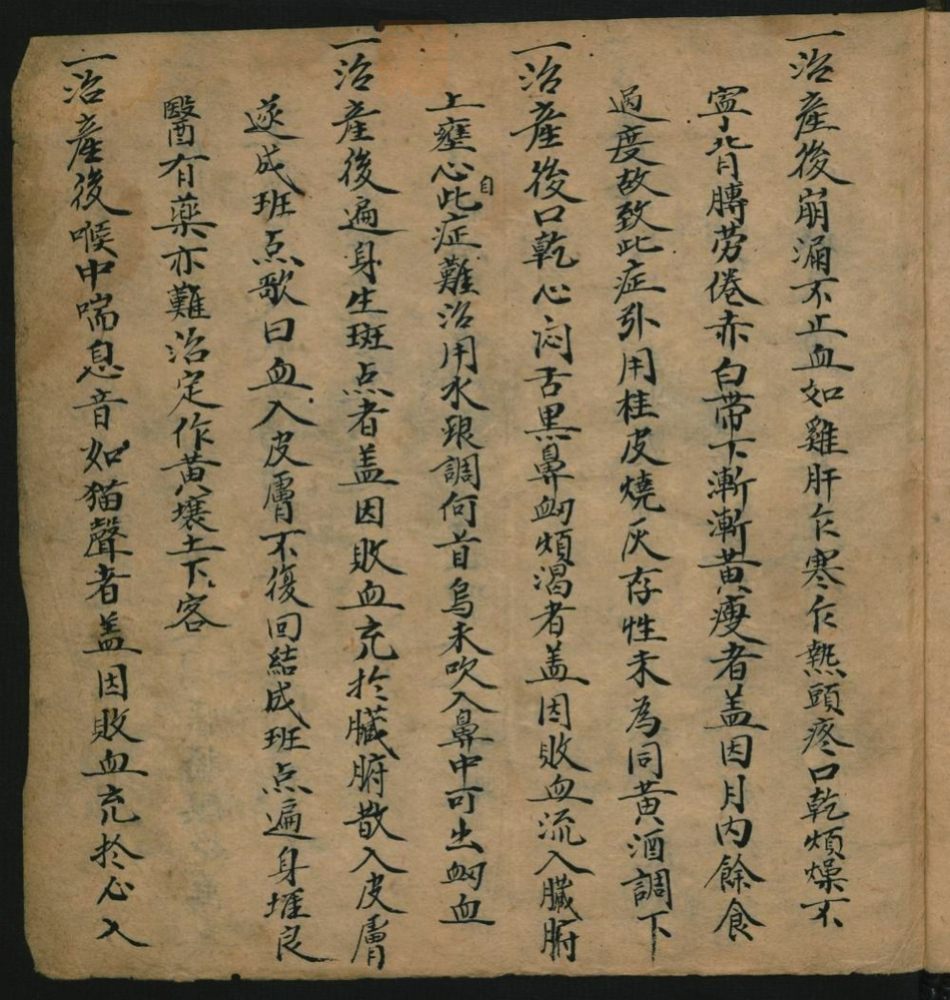 一治產後崩漏不止血如雞肝乍寒乍熱頭疼口乾煩燥不
寕背膊劳倦赤白带下漸漸黄瘦者盖因月内餘食
過度故致此症引用桂皮燒灰存性末為同黄酒調下
一治產後口乾心闷舌黑鼻衂煩渴者盖因敗血流入臟腑
上壅心自此症難治用水跟調何首烏末吹入鼻中可出衂血
一治產後遍身生斑点者盖因敗血充扵臟腑散入皮膚
遂成班点歌曰血入皮膚不復回結成班点遍身堆良
醫有薬亦難治定作黄壤土下客
一治產後喉中喘息音如猫聲者盖因敗血充扵心入